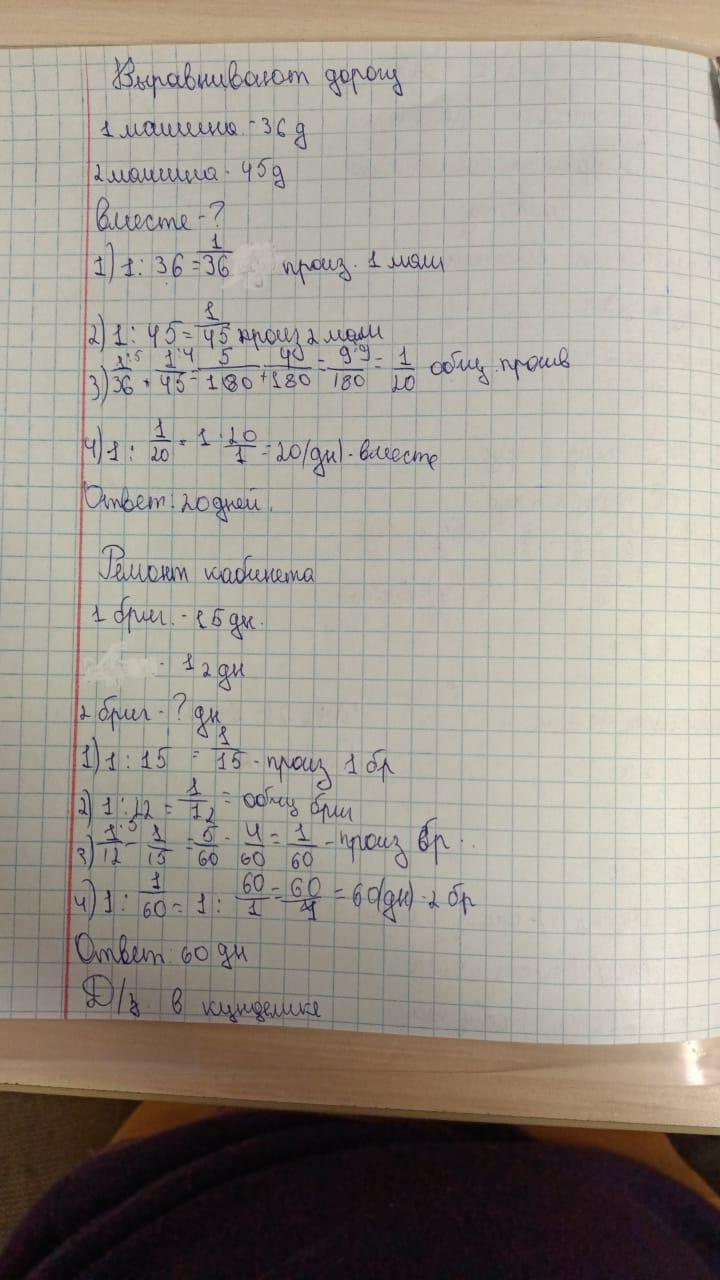 Выравнивают дорогу
1 машина - 36 д
2 машина - 45 д
Вместе - ?
1) 1 : 36 = 1/36 произ. 1 маш
2) 1 : 45 = 1/45 произ 2 маш
3) 1·5/36 + 1·4/45 = 5/180 + 4/180 = 9:9/180 = 1/20 общ. произв
4) 1 : 1/20 = 1 · 20/1 = 20 (дн) - вместе
Ответ: 20 дней.
Ремонт кабинета
1 бриг. - 15 дн.
- 12 дн
2 бриг - ? дн
1) 1 : 15 = 1/15 - произ 1 бр
2) 1 : 12 = 1/12 = общ бриг
3) 1·5/12 - 1/15 = 5/60 - 4/60 = 1/60 - произ бр..
4) 1 : 1/60 = 1 : 60/1 = 60/1 = 60 (дн) - 2 бр
Ответ: 60 дн
Д/з. в кунделике